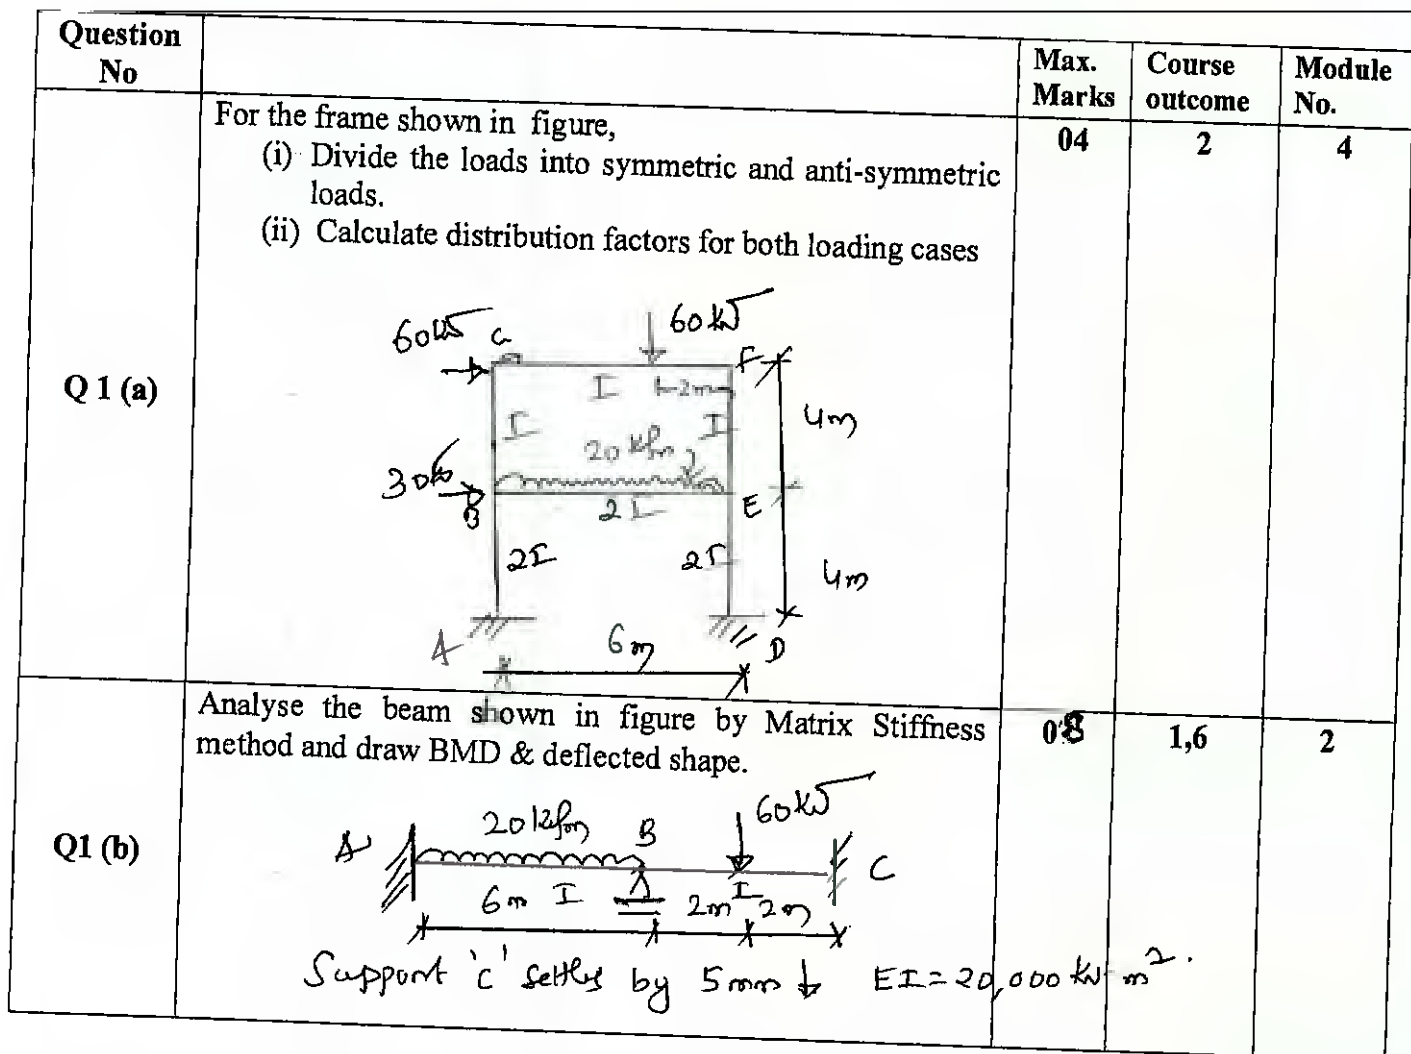 Question
No
Max.
Marks
Course
outcome
Module
No.
Q 1 (a)
For the frame shown in figure,
(i) Divide the loads into symmetric and anti-symmetric
loads.
(ii) Calculate distribution factors for both loading cases
04
2
4
60kN
60kN
F
I
2m
I
I
4m
20 kN/m
30kN
B
2I
E
2I
2I
4m
A
6m
D
Q1 (b)
Analyse the beam shown in figure by Matrix Stiffness
method and draw BMD & deflected shape.
08
1,6
2
20 kN/m
B
60kN
A
C
6m I
2m
I
2m
Support 'C' settles by 5mm ↓ EI = 20,000 kN m².